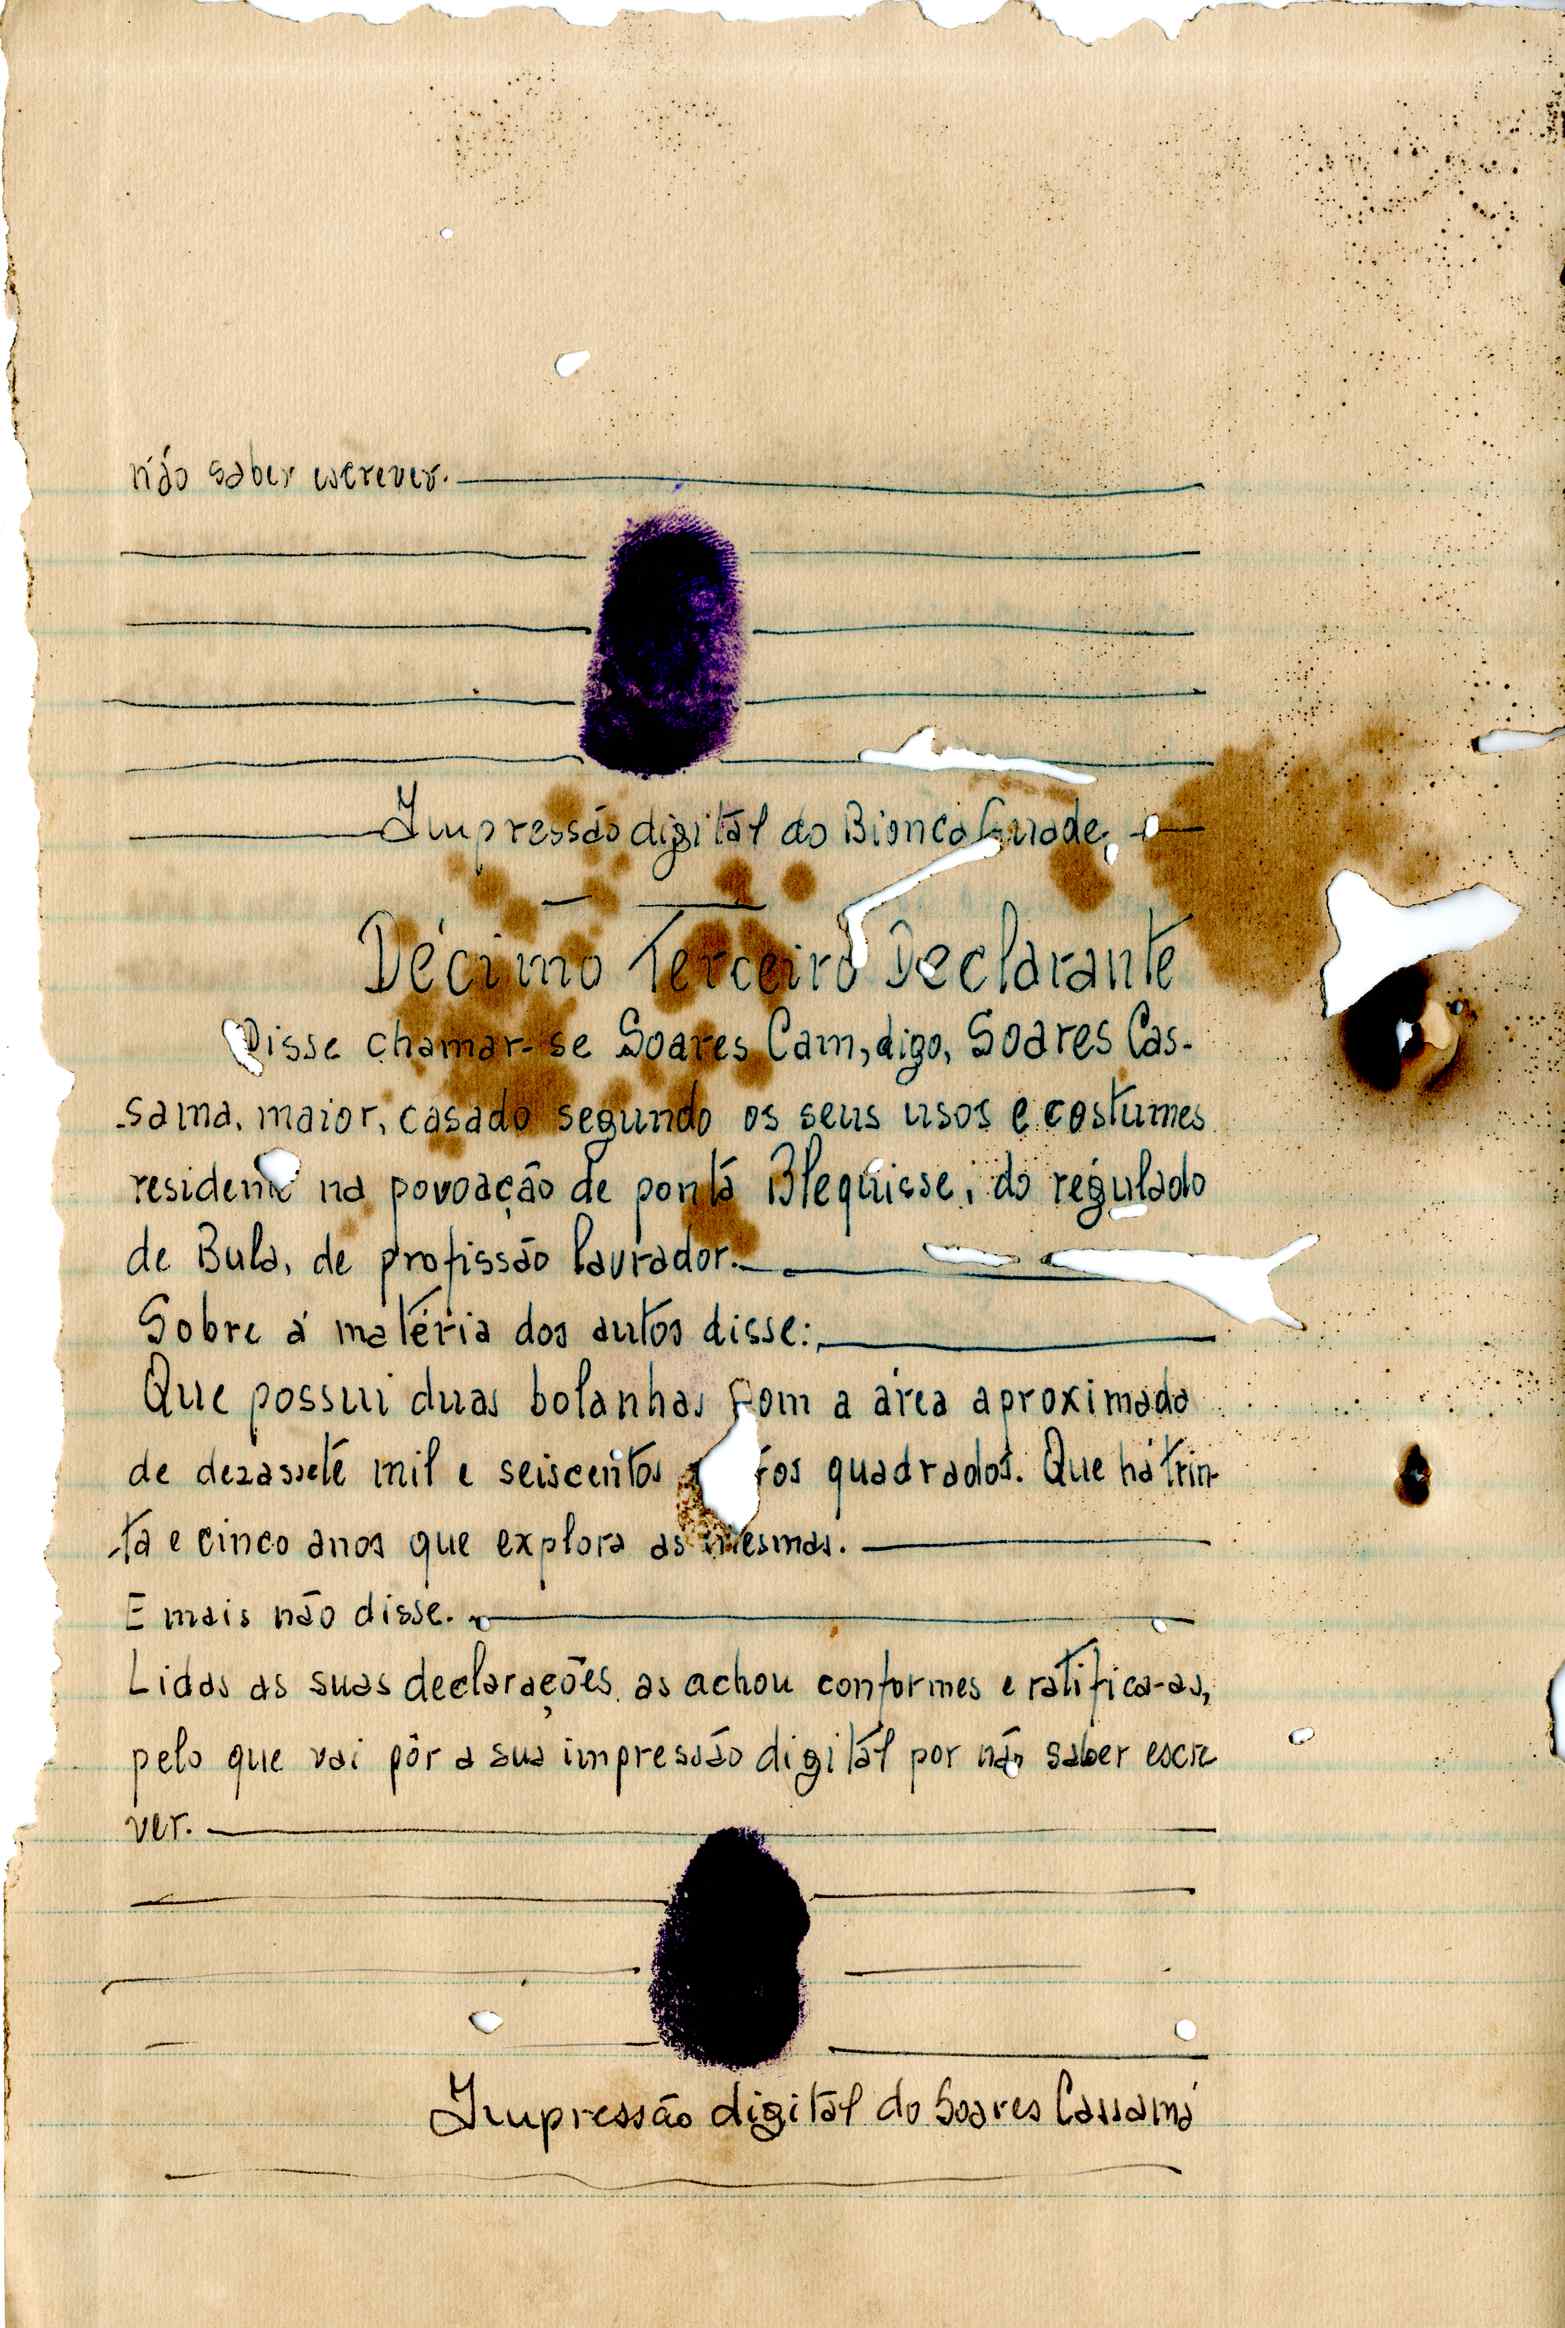 não saber escrever.
Impressão digitál do Bionca
Décimo Terceiro Declarante
Disse chamar-se Soares Cam, digo, Soares Cas-
-sama, maior, casado segundo os seus usos e costumes
residente na povoação de pontá Blequisse, do régulado
de Bula, de profissão lavrador.
Sobre á matéria dos autos disse:
Que possui duas bolanhas com a área aproximada
de dezasseté mil e seiscentos quadrados. Que há trin-
-ta e cinco anos que explora as mesmas.
E mais não disse.
Lidas as suas declarações, as achou conformes e ratifica-as,
pelo que vai pôr a sua impressão digitál por não saber escre
ver.
Impressão digitál do Soares Cassamá